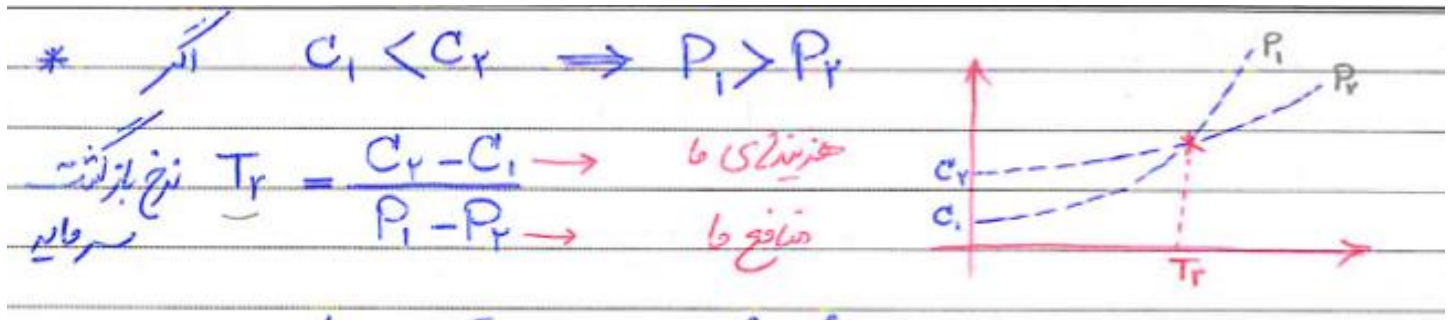 * اگر C₁ < C₂ ⟹ P₁ > P₂
نرخ بازگشت سرمایه T_r = (C₂ - C₁) / (P₁ - P₂)
→ هزینه‌های ما
→ منافع ما
P₁
P₂
C₂
C₁
T_r